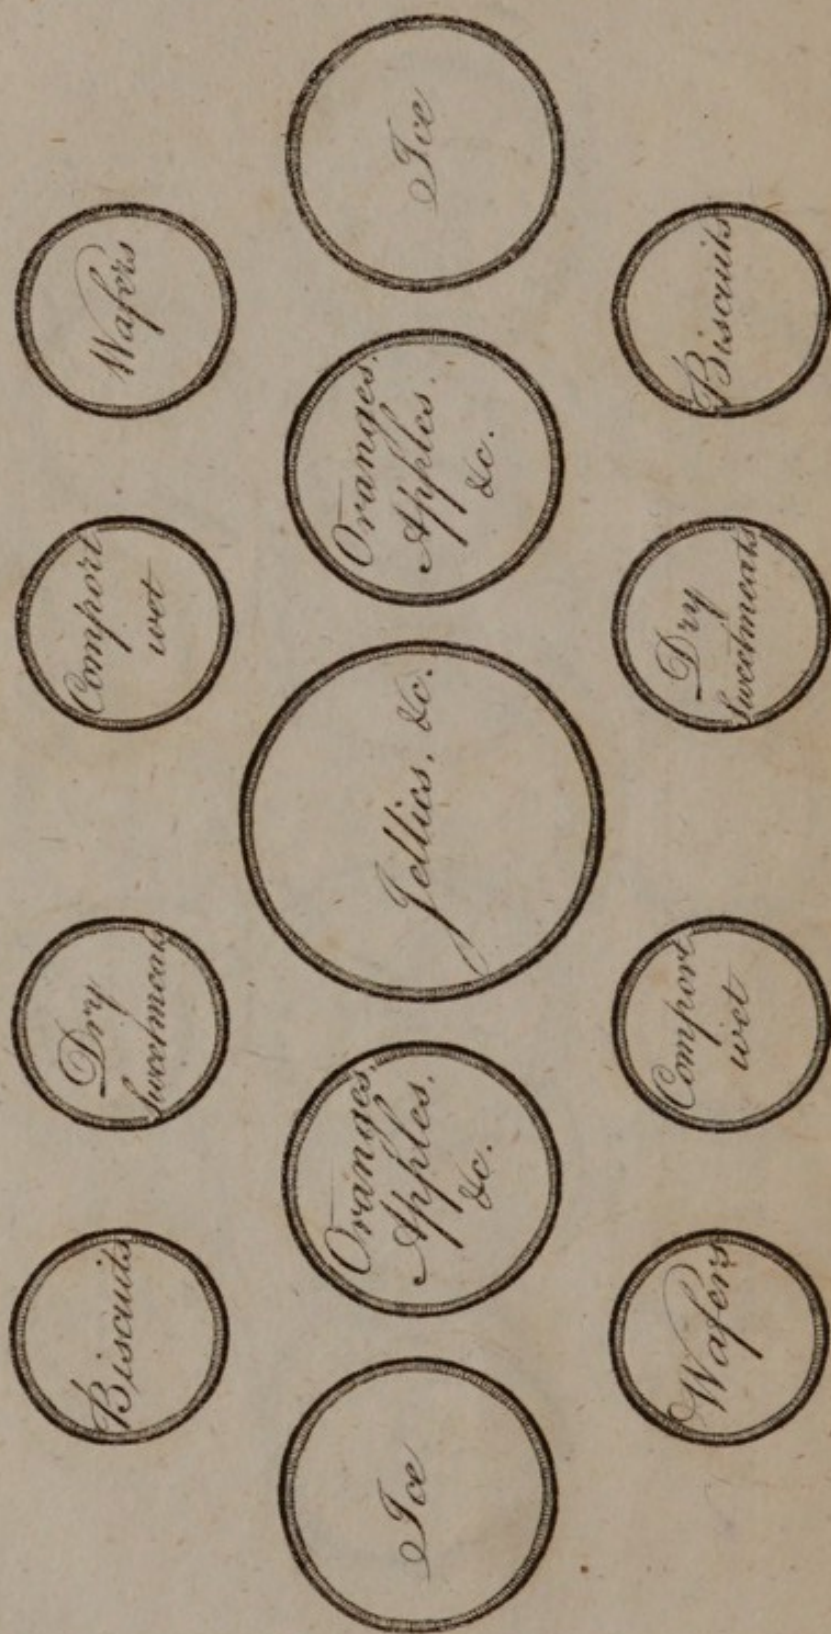 Biscuits
Dry
Sweetmeats
Comport
wet
Wafers
Ice
Oranges,
Apples,
&c.
Jellies, &c.
Oranges,
Apples,
&c.
Ice
Wafers
Comport
wet
Dry
Sweetmeats
Biscuits